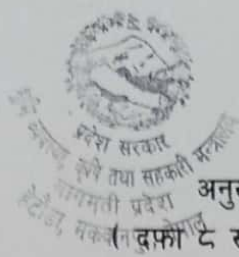 प्रदेश सरकार
कृषि तथा सहकारी मन्त्रालय
बागमती प्रदेश
हेटौंडा, मकवानपुर, नेपाल
अनुसू
( दफा ८ स